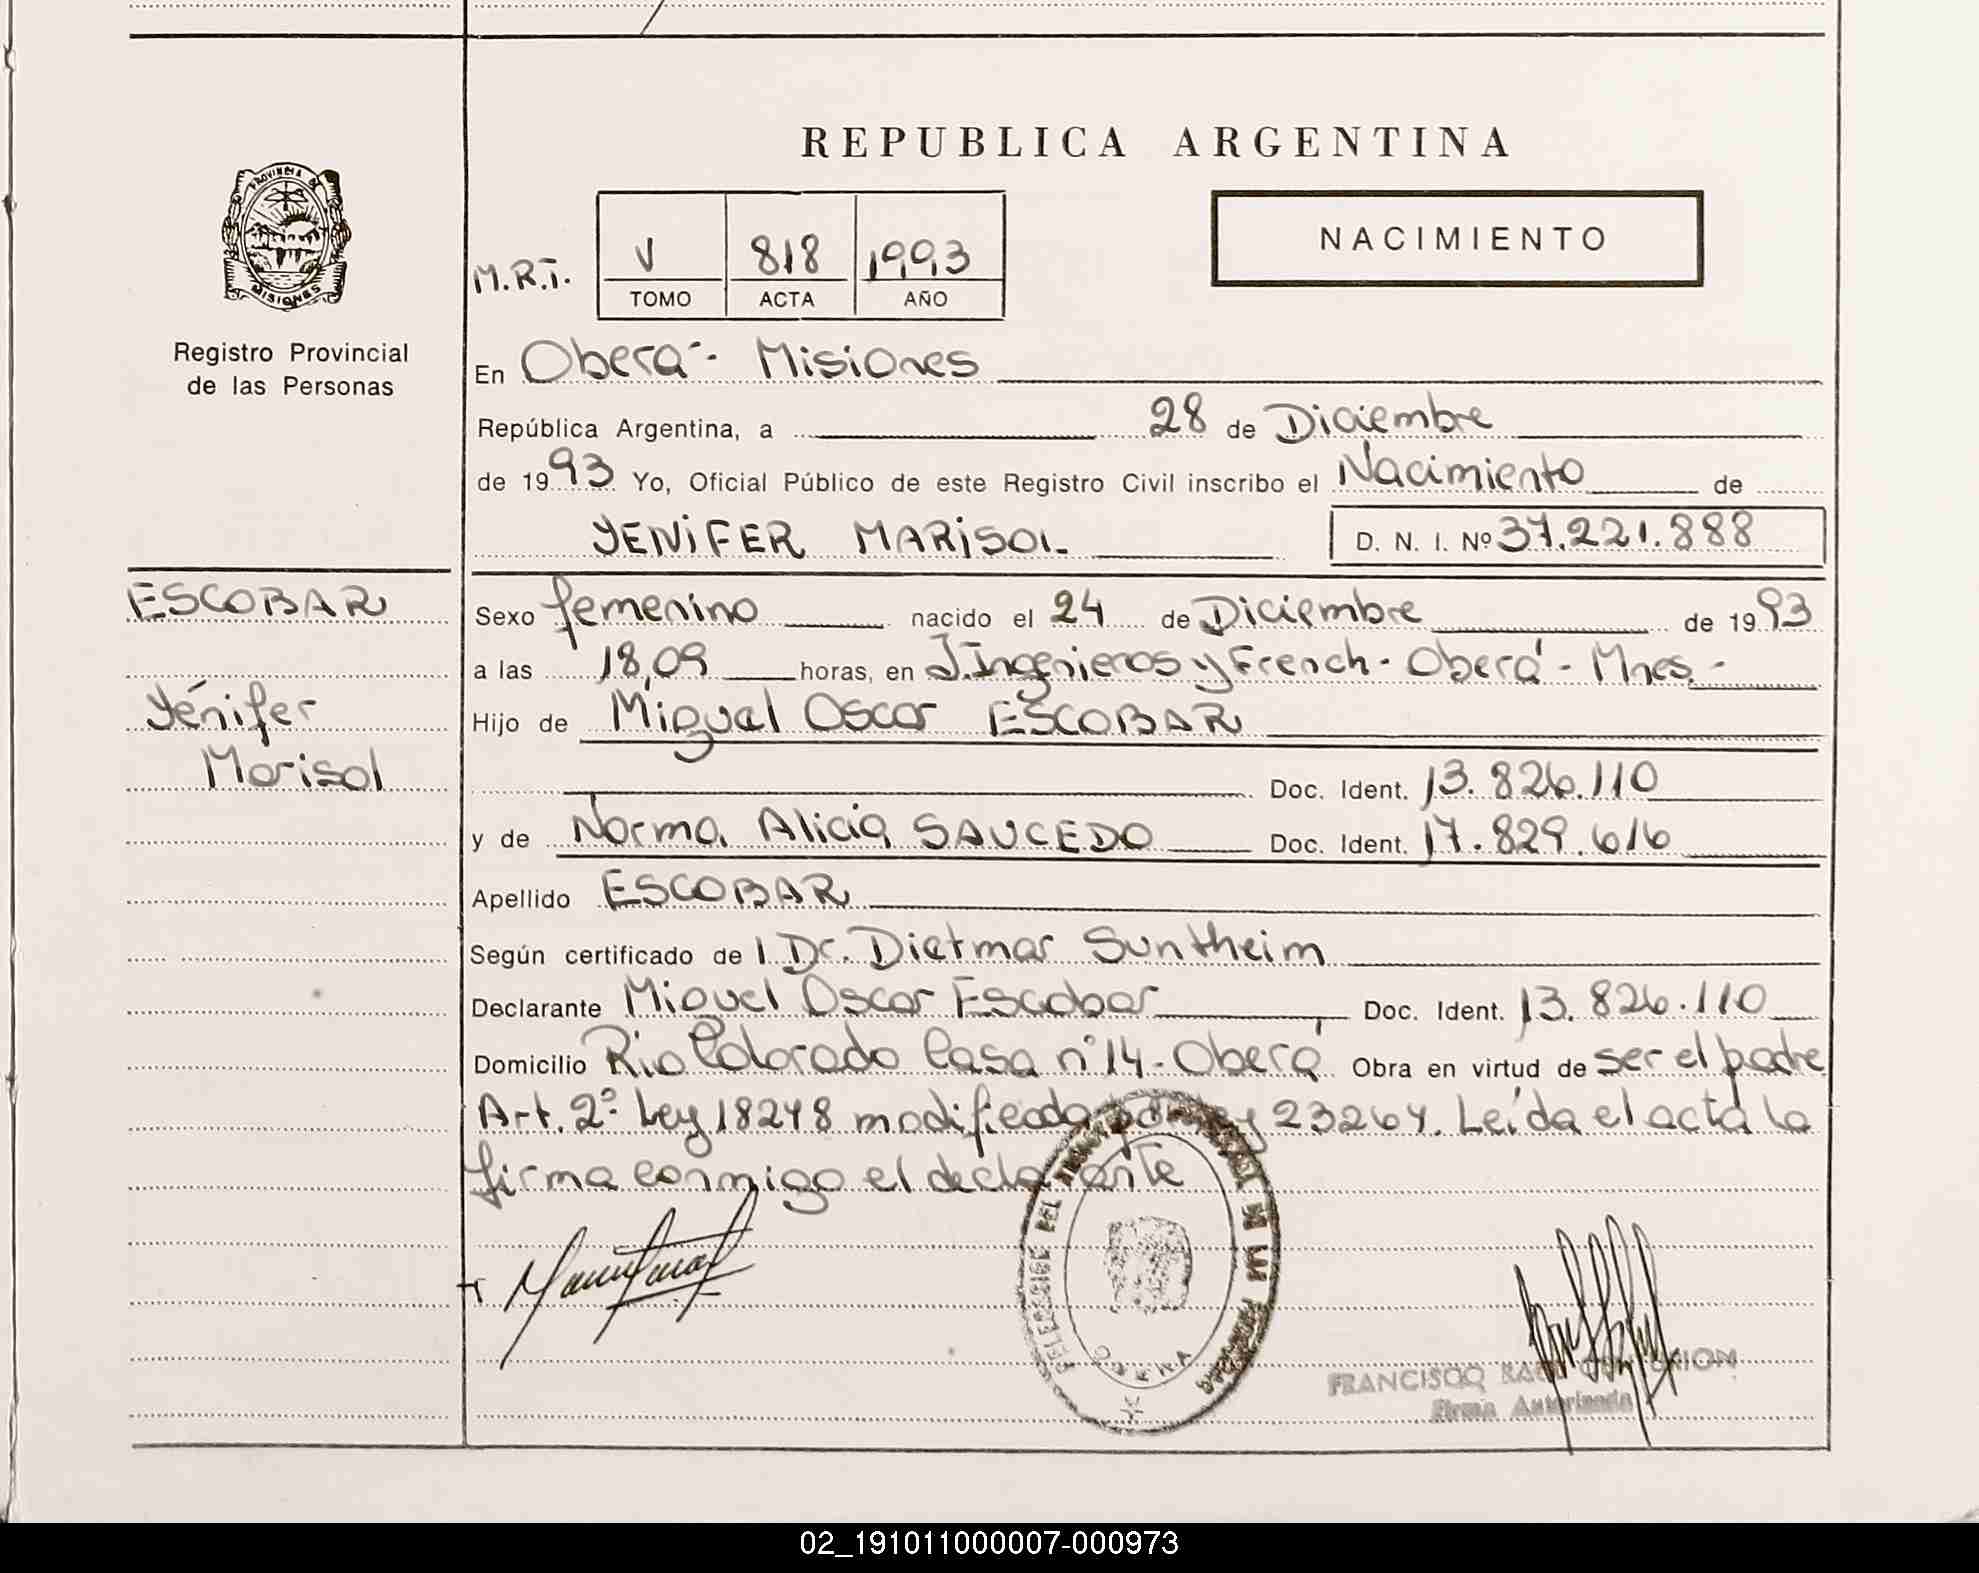 REPUBLICA ARGENTINA
PROVINCIA DE
MISIONES
Registro Provincial
de las Personas
M.R.T.
V 818 1993
TOMO ACTA AÑO
NACIMIENTO
En Oberá - Misiones
República Argentina, a 28 de Diciembre
de 1993 Yo, Oficial Público de este Registro Civil inscribo el Nacimiento de
YENIFER MARISOL D. N. I. Nº 37.221.888
ESCOBAR
Yénifer
Marisol
Sexo femenino nacido el 24 de Diciembre de 1993
a las 18,09 horas, en J.Ingenieros y French - Oberá - Mnes. -
Hijo de Miguel Oscar ESCOBAR
Doc. Ident. 13.826.110
y de Norma Alicia SAUCEDO Doc. Ident. 17.829.616
Apellido ESCOBAR
Según certificado de l Dr. Dietmar Suntheim
Declarante Miguel Oscar Escobar Doc. Ident. 13.826.110
Domicilio Rio Colorado Casa nº 14 - Oberá Obra en virtud de ser el padre
Art. 2º Ley 18248 modificada por Ley 23264. Leída el acta la
firma conmigo el declarante
DEL DE LAS
OBERA
FRANCISCO
Firma Autorizada
02_191011000007-000973